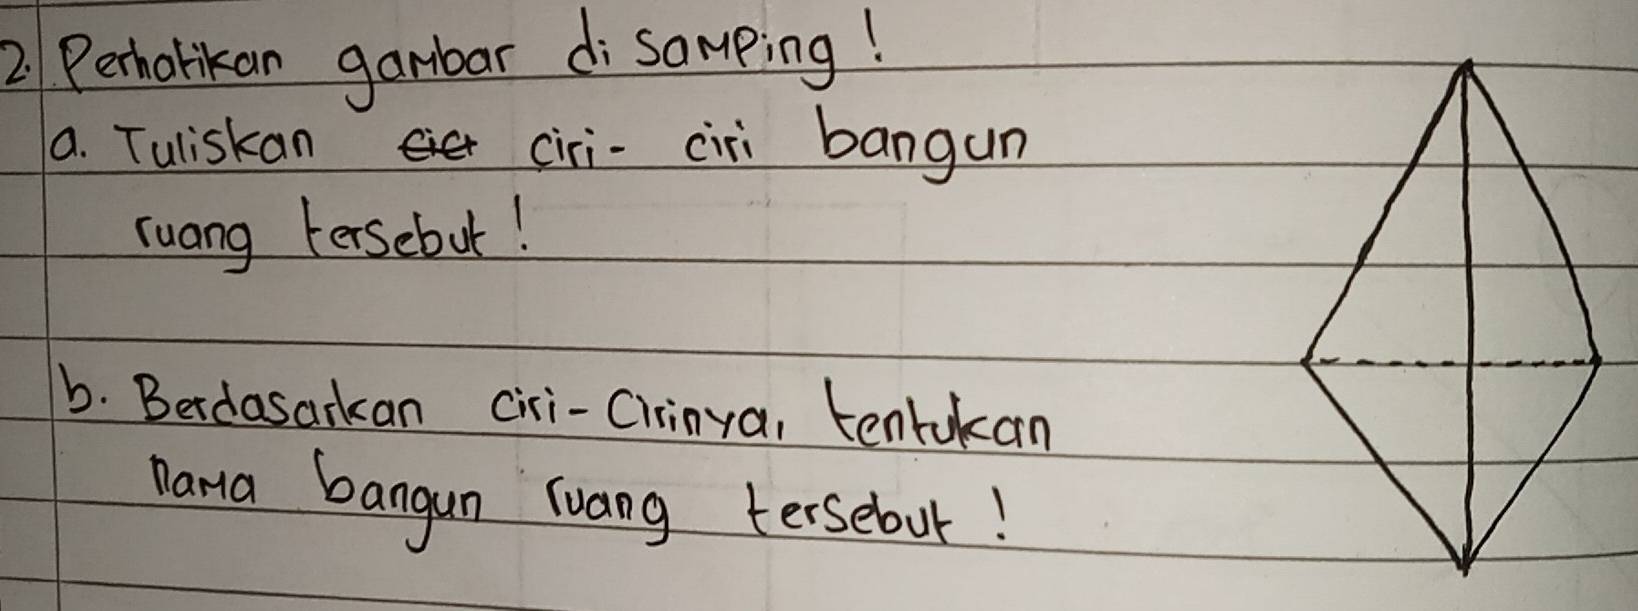 2. Perhatikan gambar di samping!
a. Tuliskan ciri-ciri bangun
ruang tersebut!
b. Berdasarkan ciri-cirinya, tentukan
nama bangun ruang tersebut!